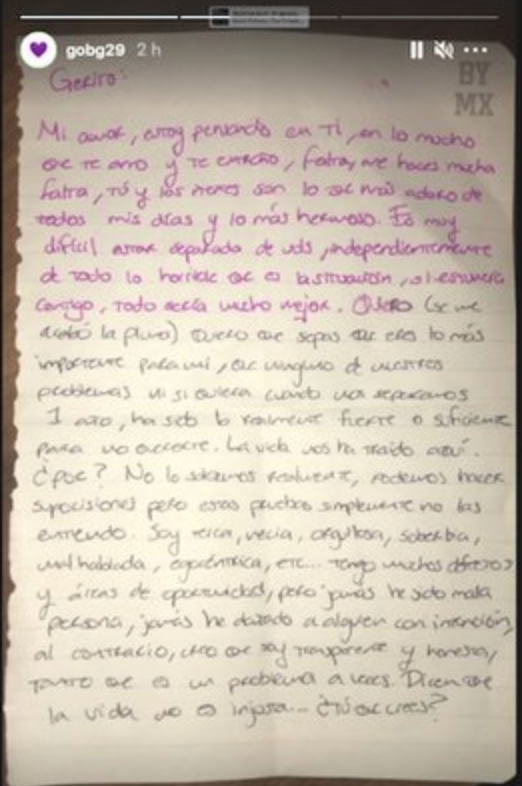 gobg29 2 h
BY
MX
Gerito:
Mi amor, estoy pensando en Ti, en lo mucho
que te amo y Te extraño, faltas, me haces mucha
falta, Tú y los nenes son lo que más adoro de
todos mis días y lo más hermoso. Es muy
difícil estar separada de uds, independientemente
de todo lo horrible que es la situación, si estuviera
contigo, todo sería mucho mejor. Quiero (se me
acabó la pluma) Quiero que sepas que eres lo más
importante para mi, que ninguno de nuestros
problemas ni si quiera cuando nos separamos
1 año, ha sido lo realmente fuerte o suficiente
para no . La vida nos ha traído aquí.
¿Por qué? No lo sabemos realmente, podemos hacer
suposiciones pero estas pruebas simplemente no las
entiendo. Soy terca, necia, orgullosa, soberbia,
mal hablada, egocéntrica, etc... Tengo muchos defectos
y áreas de oportunidad, pero jamás he sido mala
persona, jamás he dañado a alguien con intención,
al contrario, creo que soy transparente y honesta,
tanto que es un problema a veces. Dicen que
la vida no es injusta... ¿Tú qué crees?